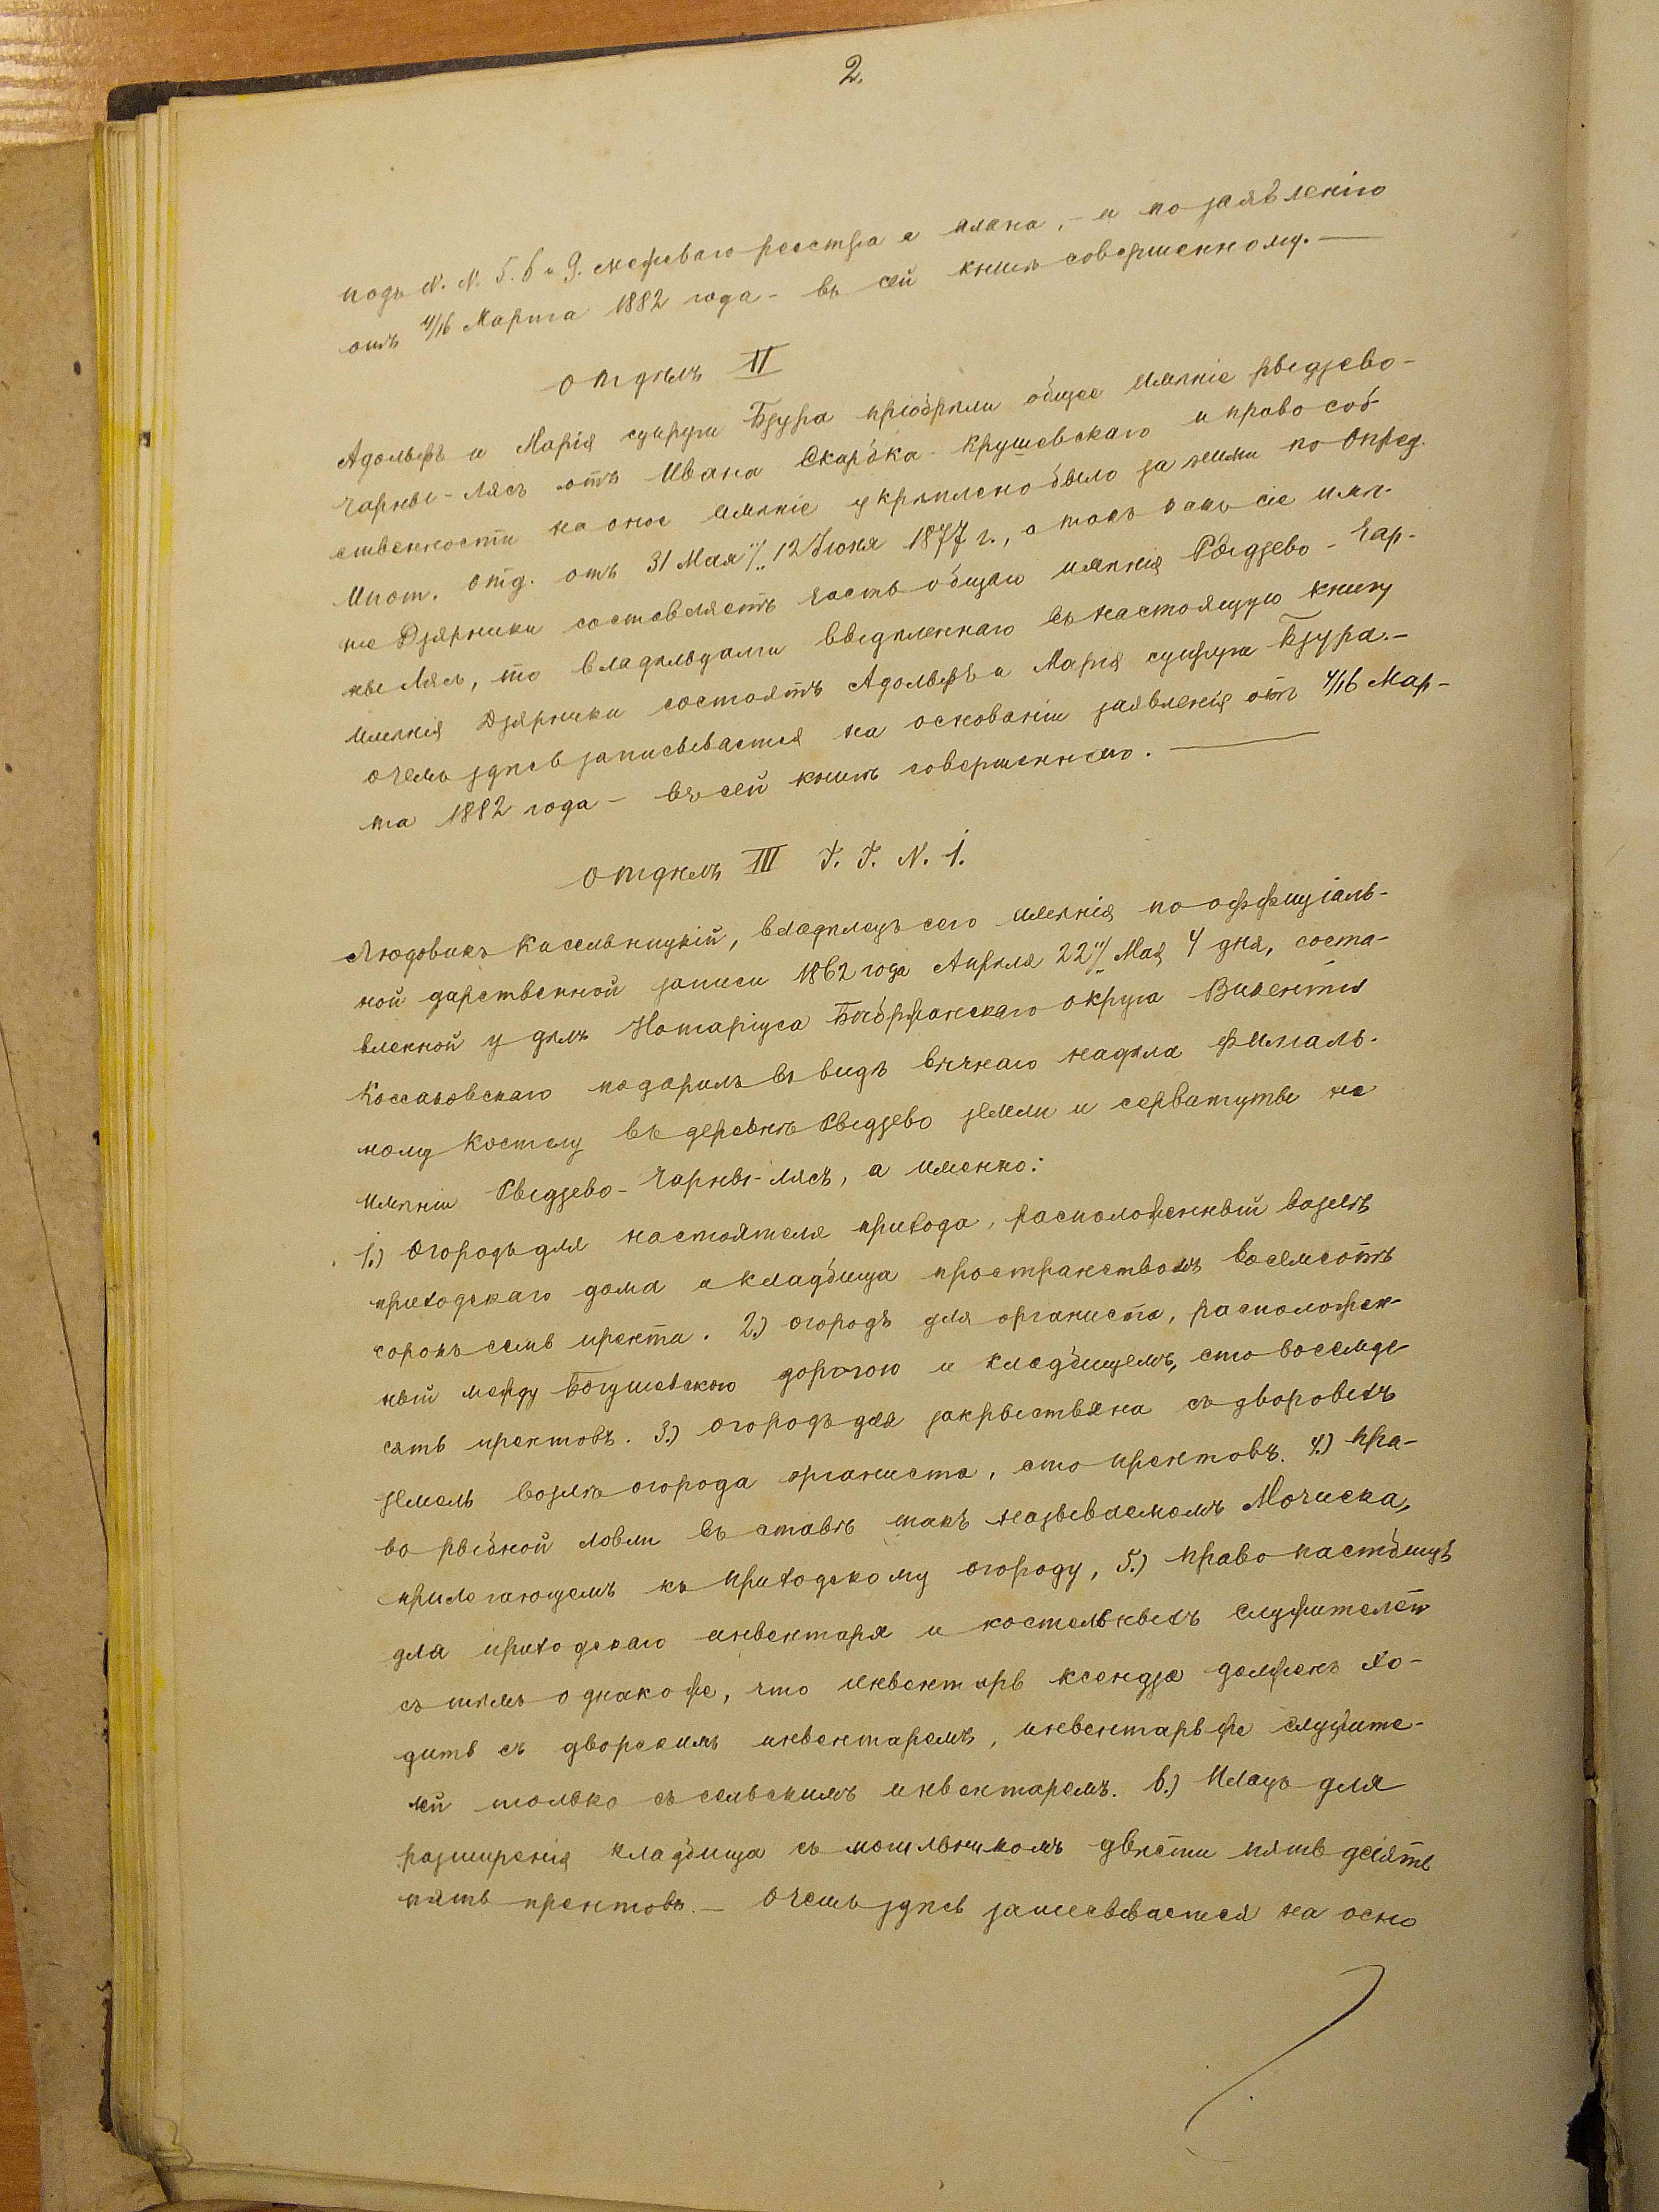 2.
подъ N. N. 5. 6 и 9. межеваго реестра и плана, - и по заявленію
отъ 4/16 Марта 1882 года - въ сей книгѣ совершенному. —
отдѣлъ II
Адольфъ и Марія супруги Бзура пріобрѣли общее имѣніе Рыдзево-
Чарны-Лясъ отъ Ивана Скарбка-Крушевскаго и право соб-
ственности на оное имѣніе укрѣплено было за ними по Опред.
Ипот. отд. отъ 31 Мая /12 Іюня 1877 г., а такъ какъ сіе имѣ-
ніе Дзярники составляетъ часть общаго имѣнія Рыдзево-Чар-
ны Лясъ, то владѣльцами выдѣленнаго въ настоящую книгу
имѣнія Дзярники состоятъ Адольфъ и Марія супруги Бзура. -
о чемъ здѣсь записывается на основаніи заявленія отъ 4/16 Мар-
та 1882 года - въ сей книгѣ совершеннаго. —
отдѣлъ III Г. Г. N. 1.
Людовикъ Кисельницкій, владѣлецъ сего имѣнія по оффиціаль-
ной дарственной записи 1862 года Апрѣля 22 / Мая 4 дня, соста-
вленной у дѣлъ Нотаріуса Бѣбржанскаго округа Викентія
Коссаковскаго подарилъ въ видѣ вѣчнаго надѣла филіаль-
ному Костелу въ деревнѣ Рыдзево земли и сервитуты на
имѣніи Рыдзево-Чарны-лясъ, а именно:
1.) Огородъ для настоятеля прихода, расположенный возлѣ
приходскаго дома и кладбища пространствомъ восемсотъ
сорокъ семь прента. 2.) огородъ для органиста, расположен-
ный между Богушевскою дорогою и кладбищемъ, сто восемде
сятъ прентовъ. 3.) Огородъ для закрыстьяна съ дворовыхъ
земель возлѣ огорода органиста, сто прентовъ. 4.) Пра-
во рыбной ловли въ ставѣ такъ называемомъ Мочиска,
прилегающемъ къ приходскому огороду, 5.) право пастбищъ
для приходскаго инвентаря и костельныхъ служителей
съ тѣмъ однакоже, что инвентарь ксендза долженъ хо-
дить съ дворскимъ инвентаремъ, инвентарь же служите-
лей только съ сельскимъ инвентаремъ. 6.) Плацъ для
разширенія кладбища съ могильникомъ двѣсти пять десятъ
пять прентовъ. - О чемъ здѣсь записывается на осно